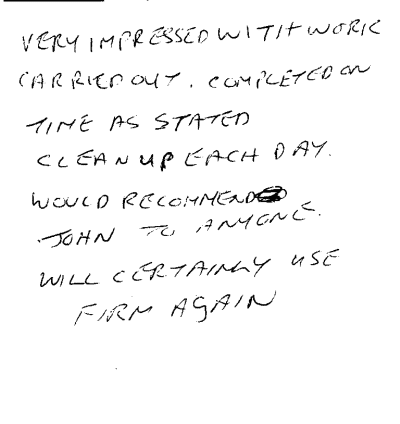 VERY IMPRESSED WITH WORK
CARRIED OUT. COMPLETED ON
TIME AS STATED
CLEAN UP EACH DAY.
WOULD RECOMMEND
JOHN TO ANYONE.
WILL CERTAINLY USE
FIRM AGAIN